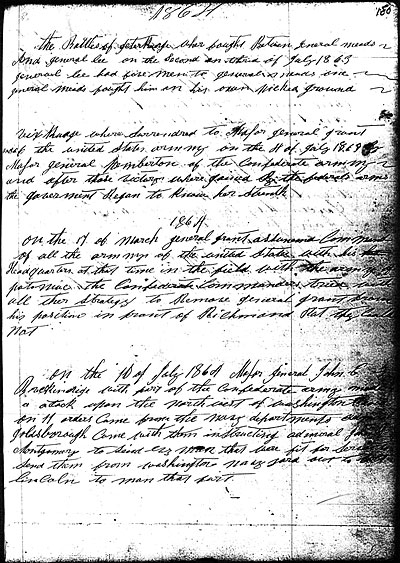 1864
180
the Battles of geterburge wher fought Between general meads
And general lee on the Second an third of July 1863
general lee had five men to generals meads one
general meads fought him on his own picked ground
vixburge where Surrendred to Major general grant
of the united States armmy on the 4 of July 1863 by
Major general pemberton of the Confederate armmy
and after those victorys where gained By the federals arms
the goverment Began to Know her Strenth
1864
on the 17 of march general grant assumed Command
of all the armmys of the united States with his
Headquarters at that time in the field with the army of
patomac the Confederate Commanders tried with
all ther Strategy to Remove general grant from
his position in front of Richmond But they Could
Not
on the 10 of July 1864 Major general John C
Breckindige with part of the Confederate army made
a atack upon the north west of washington City
on 11 orders Came from the navy department
Goldsborough Came with them instructing admiral
Montgomery to Send evry man that wer fit for Service
Send them from washington navy yard over to fort
lincoln to man that fort